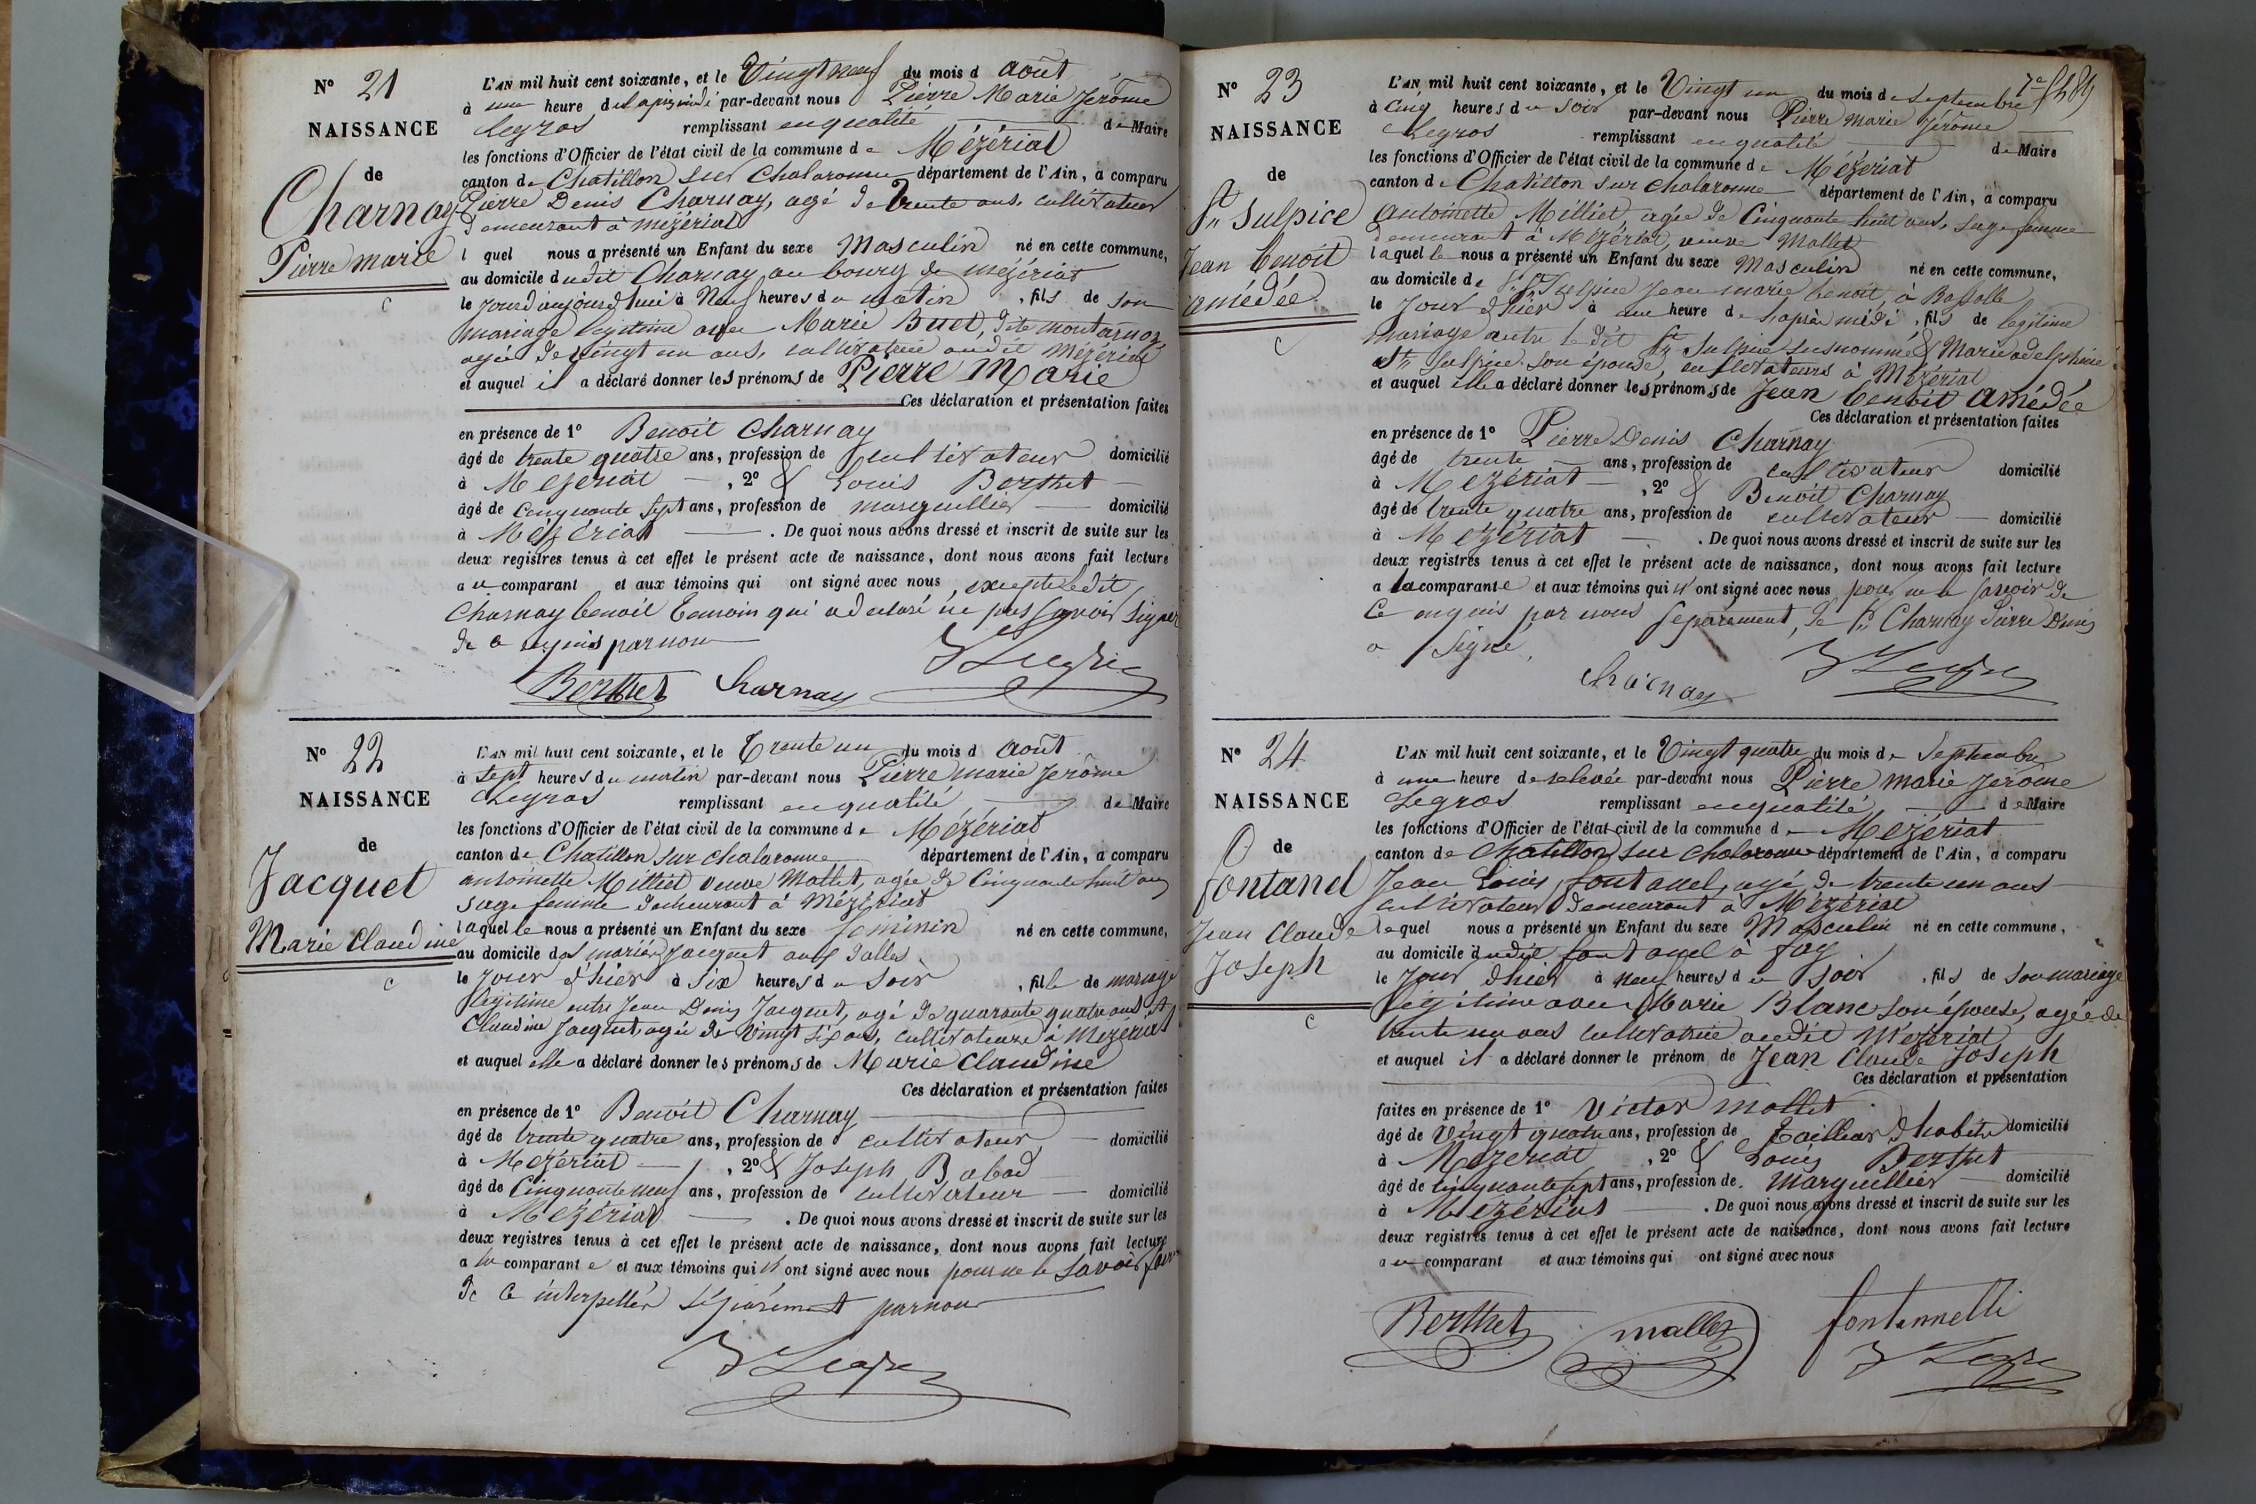 N° 21
NAISSANCE
de
Charnay
Pierre marie
c
L'AN mil huit cent soixante, et le Vingt neuf du mois d août
à une heure de l'après midi par-devant nous Pierre Marie Jérôme
Legros remplissant en qualité de Maire
les fonctions d'Officier de l'état civil de la commune de Mézériat
canton de Chatillon sur Chalaronne département de l'Ain, a comparu
Pierre Denis Charnay, agé de trente ans, cultivateur
demeurant à mézériat
lequel nous a présenté un Enfant du sexe Masculin né en cette commune,
au domicile dudit Charnay au bourg de mézériat
le jour d'aujourd'hui à Neuf heures du matin, fils de son
mariage légitime avec Marie Buet, dite montarnoz
agée de vingt un ans, cultivatrice audit Mézériat
et auquel il a déclaré donner les prénoms de Pierre Marie
Ces déclaration et présentation faites
en présence de 1° Benoit Charnay
âgé de trente quatre ans, profession de cultivateur domicilié
à Mézériat, 2° & Louis Berthet
âgé de Cinquante Sept ans, profession de marguillier domicilié
à Mézériat. De quoi nous avons dressé et inscrit de suite sur les
deux registres tenus à cet effet le présent acte de naissance, dont nous avons fait lecture
au comparant et aux témoins qui ont signé avec nous, excepté ledit
Charnay benoit témoin qui a déclaré ne pas savoir signer
de ce requis par nous
Berthet Charnay JLegros
N° 22
NAISSANCE
de
Jacquet
Marie Claudine
c
L'AN mil huit cent soixante, et le Trente un du mois d août
à sept heures du matin par-devant nous Pierre marie Jerôme
Legros remplissant en qualité de Maire
les fonctions d'Officier de l'état civil de la commune de Mézériat
canton de Chatillon sur chalaronne département de l'Ain, a comparu
antoinette Milliet veuve Mallet, agée de Cinquante huit ans
sage femme demeurant à Mézériat
laquelle nous a présenté un Enfant du sexe féminin né en cette commune,
au domicile des mariés Jacquet aux Dalles
le jour d'hier à Six heures du soir, fille de mariage
légitime entre Jean Denis Jacquet, agé de quarante quatre ans et
Claudine Jacquet, agée de Vingt six ans, cultivateurs à Mézériat
et auquel elle a déclaré donner les prénoms de Marie Claudine
Ces déclaration et présentation faites
en présence de 1° Benoit Charnay
âgé de trente quatre ans, profession de cultivateur domicilié
à Mézériat, 2° & Joseph Babad
âgé de Cinquante neuf ans, profession de cultivateur domicilié
à Mézériat. De quoi nous avons dressé et inscrit de suite sur les
deux registres tenus à cet effet le présent acte de naissance, dont nous avons fait lecture
a la comparante et aux témoins qui n'ont signé avec nous pour ne le savoir faire
de ce interpellés séparément par nous
JLegros
N° 23
NAISSANCE
de
St Sulpice
Jean benoit
amédée
c
7e
L'AN mil huit cent soixante, et le Vingt un du mois de Septembre
à cinq heures du soir par-devant nous Pierre Marie Jérôme
Legros remplissant en qualité de Maire
les fonctions d'Officier de l'état civil de la commune de Mézériat
canton de Chatillon sur chalaronne département de l'Ain, a comparu
antoinette Milliet, agée de Cinquante huit ans, sage femme
demeurant à Mézériat, veuve Mallet
laquelle nous a présenté un Enfant du sexe Masculin né en cette commune,
au domicile de St Sulpice Jean marie benoit, à
le Jour d'hier à une heure de l'après midi, fils de légitime
mariage entre le dit St Sulpice susnommé & Marie adelphine
St Sulpice son épouse, cultivateurs à Mézériat
et auquel elle a déclaré donner les prénoms de Jean benoit amédée
Ces déclaration et présentation faites
en présence de 1° Pierre Denis Charnay
âgé de trente ans, profession de cultivateur domicilié
à Mézériat, 2° & Benoit Charnay
âgé de trente quatre ans, profession de cultivateur domicilié
à Mézériat. De quoi nous avons dressé et inscrit de suite sur les
deux registres tenus à cet effet le présent acte de naissance, dont nous avons fait lecture
a la comparante et aux témoins qui n'ont signé avec nous pour ne le savoir de
ce enquis par nous séparément, le Sr Charnay Pierre Denis
a signé,
Charnay JLegros
N° 24
NAISSANCE
de
fontanel
Jean Claude
Joseph
c
L'AN mil huit cent soixante, et le Vingt quatre du mois de Septembre
à une heure de relevée par-devant nous Pierre marie Jérôme
Legros remplissant en qualité de Maire
les fonctions d'Officier de l'état civil de la commune de Mézériat
canton de Chatillon sur Chalaronne département de l'Ain, a comparu
Jean Louis fontanel, agé de trente un ans
cultivateur demeurant à Mézériat
lequel nous a présenté un Enfant du sexe Masculin né en cette commune,
au domicile dudit fontanel à fay
le jour d'hier à neuf heures du soir, fils de son mariage
légitime avec Marie Blanc son épouse, agée de
trente un ans cultivatrice audit Mézériat
et auquel il a déclaré donner le prénom de Jean Claude Joseph
Ces déclaration et présentation
faites en présence de 1° Victor mallet
âgé de Vingt quatre ans, profession de tailleur d'habits domicilié
à Mézériat, 2° & Louis Berthet
âgé de cinquante sept ans, profession de Marguillier domicilié
à Mézériat. De quoi nous avons dressé et inscrit de suite sur les
deux registres tenus à cet effet le présent acte de naissance, dont nous avons fait lecture
au comparant et aux témoins qui ont signé avec nous
Berthet mallet fontannelli
JLegros